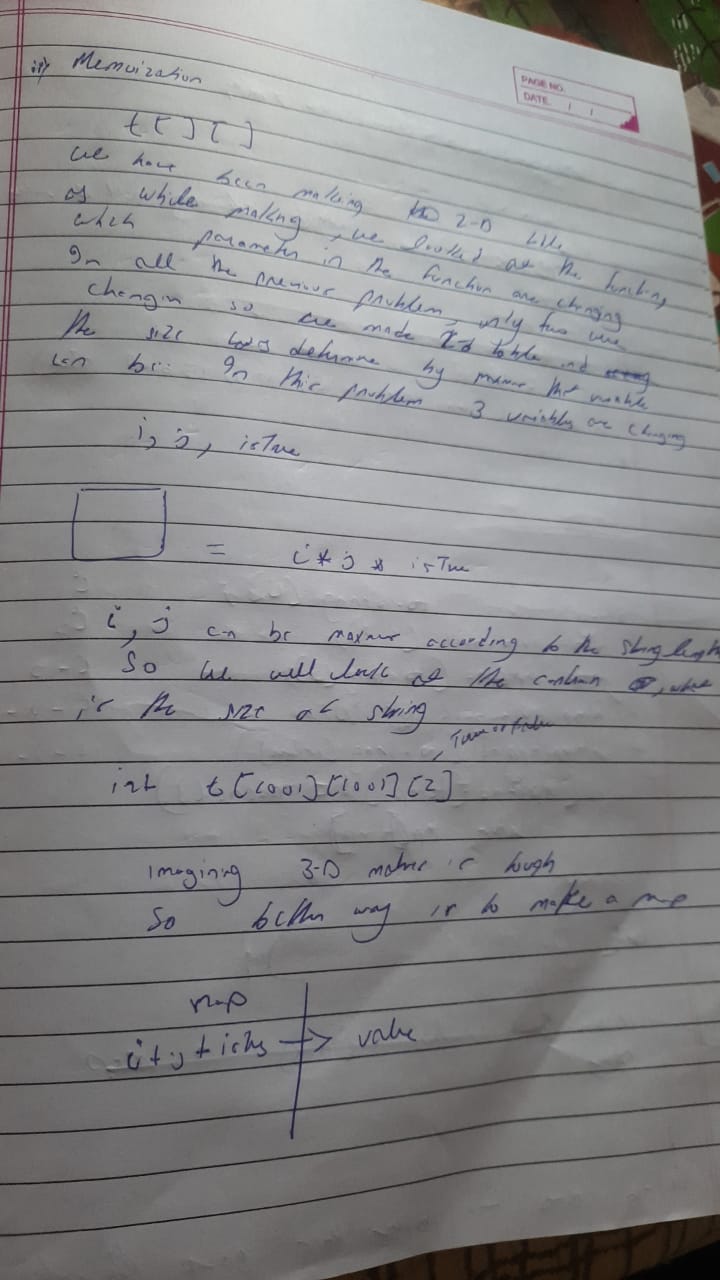 PAGE NO.
DATE / /
ii) Memoization
t[ ][ ]
We have been making 2-D
as while making, we looked at the function,
which parameter in the function are changing
In all the previous problem, only two were
changin so we made 2-d table and
the size was determine by maximum the variable
can be. In this problem 3 variables are changing
i, j, isTrue
= i * j * isTrue
i, j can be maximum according to the string length
So we will look at the contrain, what
is the size of string
True or False
int t[1001][1001][2]
imagining 3-D matrix is tough
So better way is to make a map
map
i + j + isTrue → value